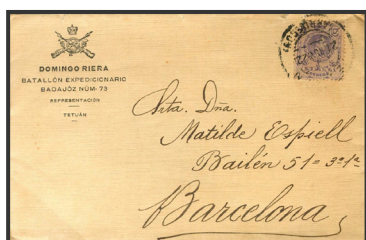 DOMINGO RIERA
BATALLÓN EXPEDICIONARIO
BADAJÓZ NÚM. 73
REPRESENTACIÓN
TETUÁN
Srta. Dña.
Matilde Espiell
Bailén 51= 3º 1ª
Barcelona,